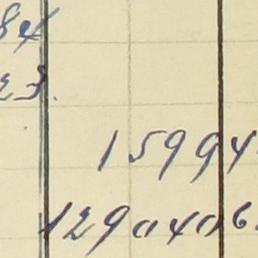 84
23.
15994
1290406.